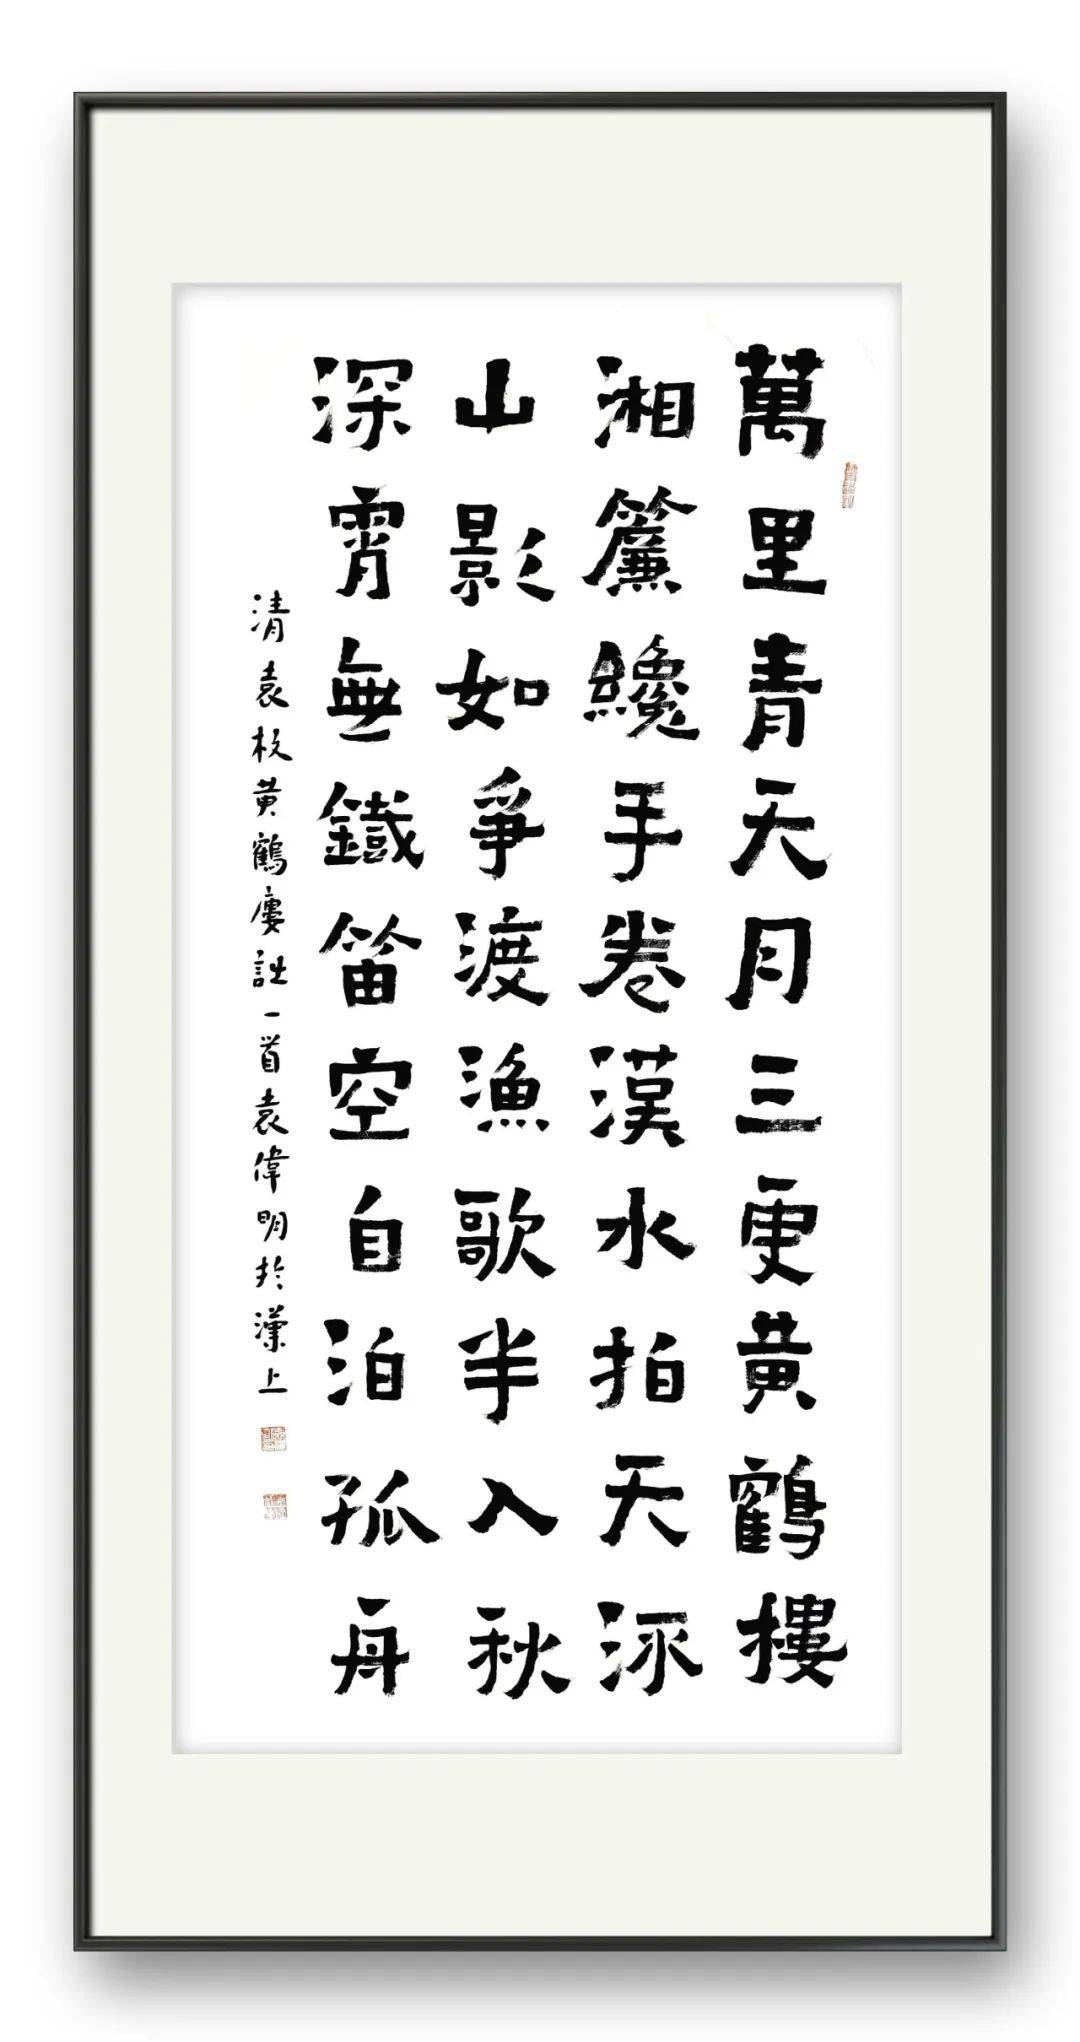 萬里青天月三更黃鶴樓
湘簾纔手卷漢水拍天流
山影如爭渡漁歌半入秋
深霄無鐵笛空自泊孤舟
清袁枚黃鶴樓詩一首袁偉明於漢上